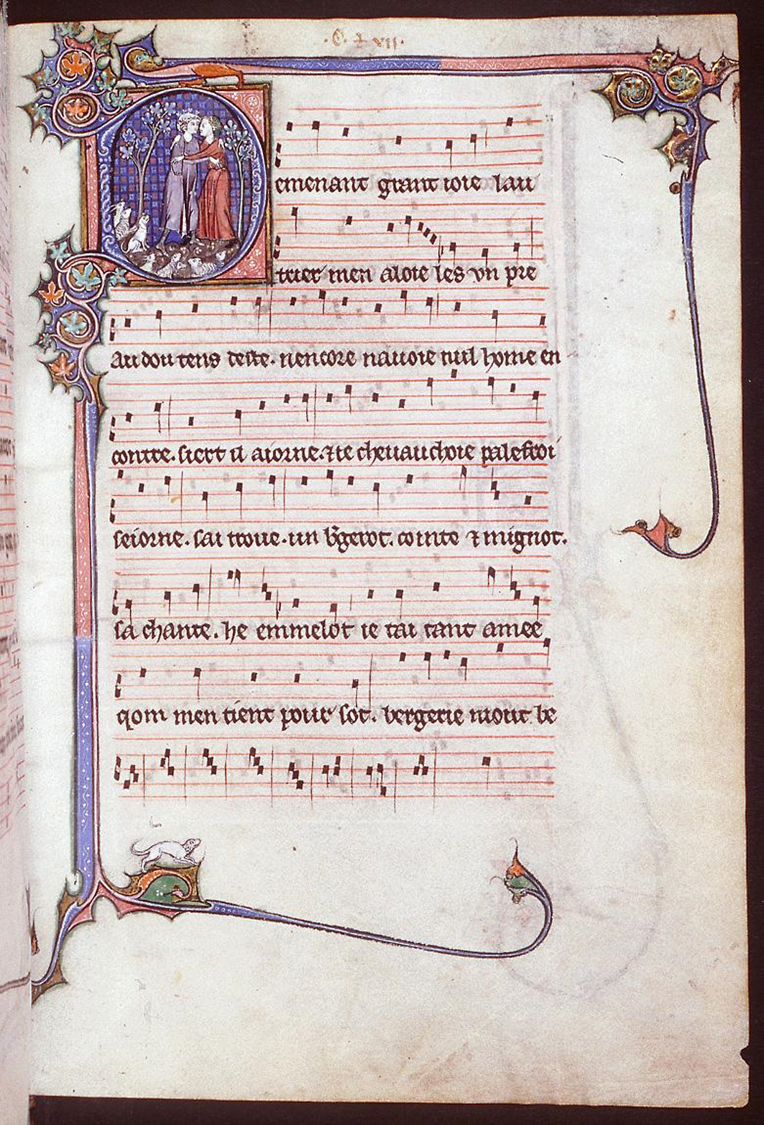 .C. L vii.
Demenant grant ioie lau
trier men aloie les vn pre
au dou tens deste. nencore nauoie nul home en
contre. siert il aiorne. ⁊ ie cheuauchoie palefroi
seiorne. sai troue. un b̾gerot. cointe ⁊ mignot.
sa chante. he emmelot ie tai tant amee
qom men tient pour sot. bergerie mout be